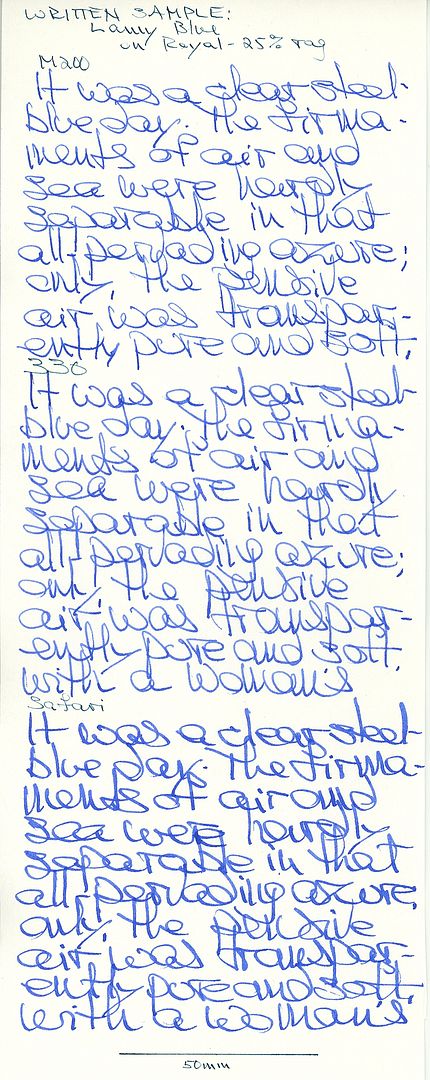 WRITTEN SAMPLE:
Lamy Blue
on Royal - 25% rag
M200
It was a clear steel-
blue day. The firma-
ments of air and
sea were hardly
separable in that
all-pervading azure;
only, the pensive
air was transpar-
ently pure and soft,
330
It was a clear steel-
blue day. The firma-
ments of air and
sea were hardly
separable in that
all-pervading azure;
only, the pensive
air was transpar-
ently pure and soft,
with a woman's
Safari
It was a clear steel-
blue day. The firma-
ments of air and
sea were hardly
separable in that
all-pervading azure;
only, the pensive
air was transpar-
ently pure and soft,
with a woman's
50mm